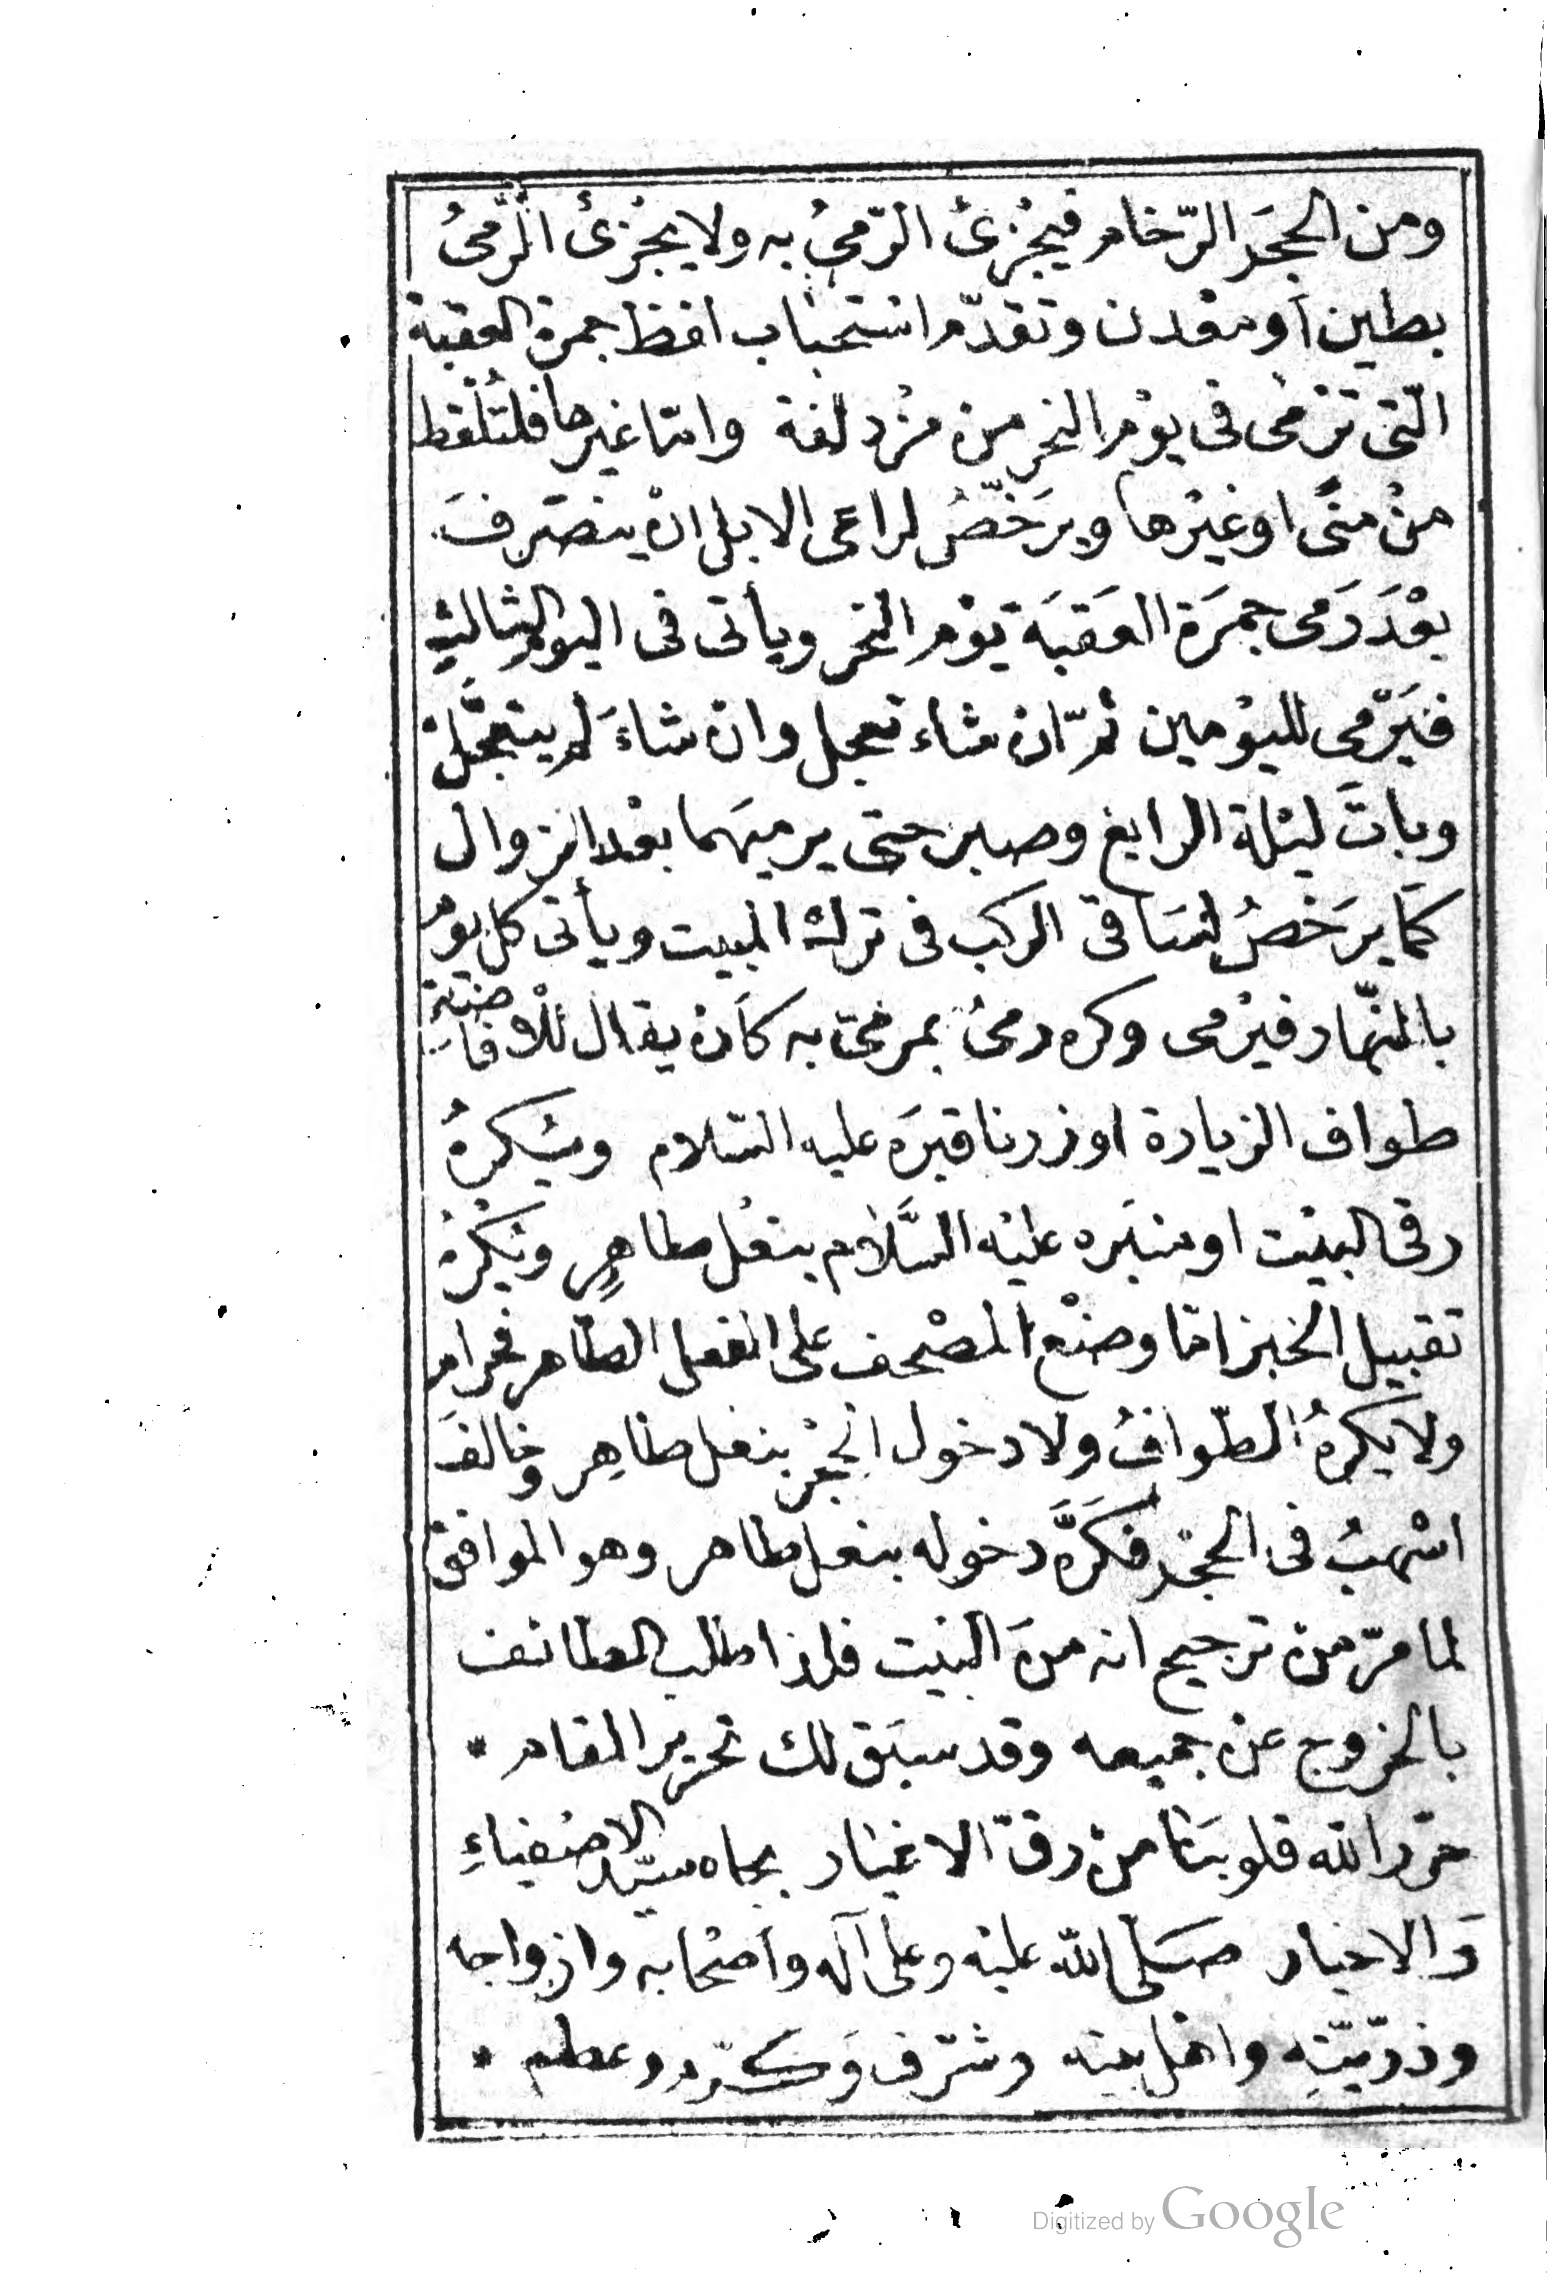 ومن الحجَر الرّخام فيُجْزئُ الرّميُ به ولا يُجْزئُ الرَّميُ
بطين او معْدن وتقدّم استحْبَاب لقط جمرة العقبة
الّتى تُرْمٰى فى يوْم النحر من مُزْدلفة وامّا غيرها فلتُلْقط
منْ مِنًى او غيْرها ويرَخّصُ لراعى الابل انْ ينصَرفَ
بعْدَ رَمى جمرَة العَقبَة يوْم النحر ويأتى فى اليوم الثالثِ
فيَرْمى لليوْمين ثمّ ان شاء تعجل وان شاءَ لم يتعجَّلْ
وباتَ ليْلة الرابع وصبر حتى يرميَهما بعْد الزوال
كمَا يرَخصُ لسَاقى الركب فى ترك المبيت ويأتى كل يوم
بالنّهار فيرْمى وكره رمىُ بمرمىّ به كاَن يقال للْافاضَةِ
طواف الزيارة او زرنا قبرَه عليه السّلام ويُكرهُ
رقى البيْت او منبَره عليْه السَّلام بنعْل طاهِرٍ ويُكْرهُ
تقبيل الخبز امّا وضْع المصْحف على النعل الطّاهر فحرام
ولا يُكرهُ الطّوافُ ولا دخول الحِجْر بنعل طاهِر وخالفَ
اشْهبُ فى الحجْر فكَرَّه دخوله بنعل طاهر وهو الموافق
لما مرّ منْ ترجيح انه منَ البيْت فلذا طلب الطائف
بالخروج عنْ جميعه وقد سبَق لك تحرير المقام *
حرّر الله قلوبَنا منْ رقّ الاغيَار بجاه سيّد الاصْفياءِ
وَالاخيار صَلى الله عليْه وعلى آله وأصْحابه وازواجه
وذرّيّتِه واهْل بيته وشرّف وَكرّم وعظم *
Digitized by Google